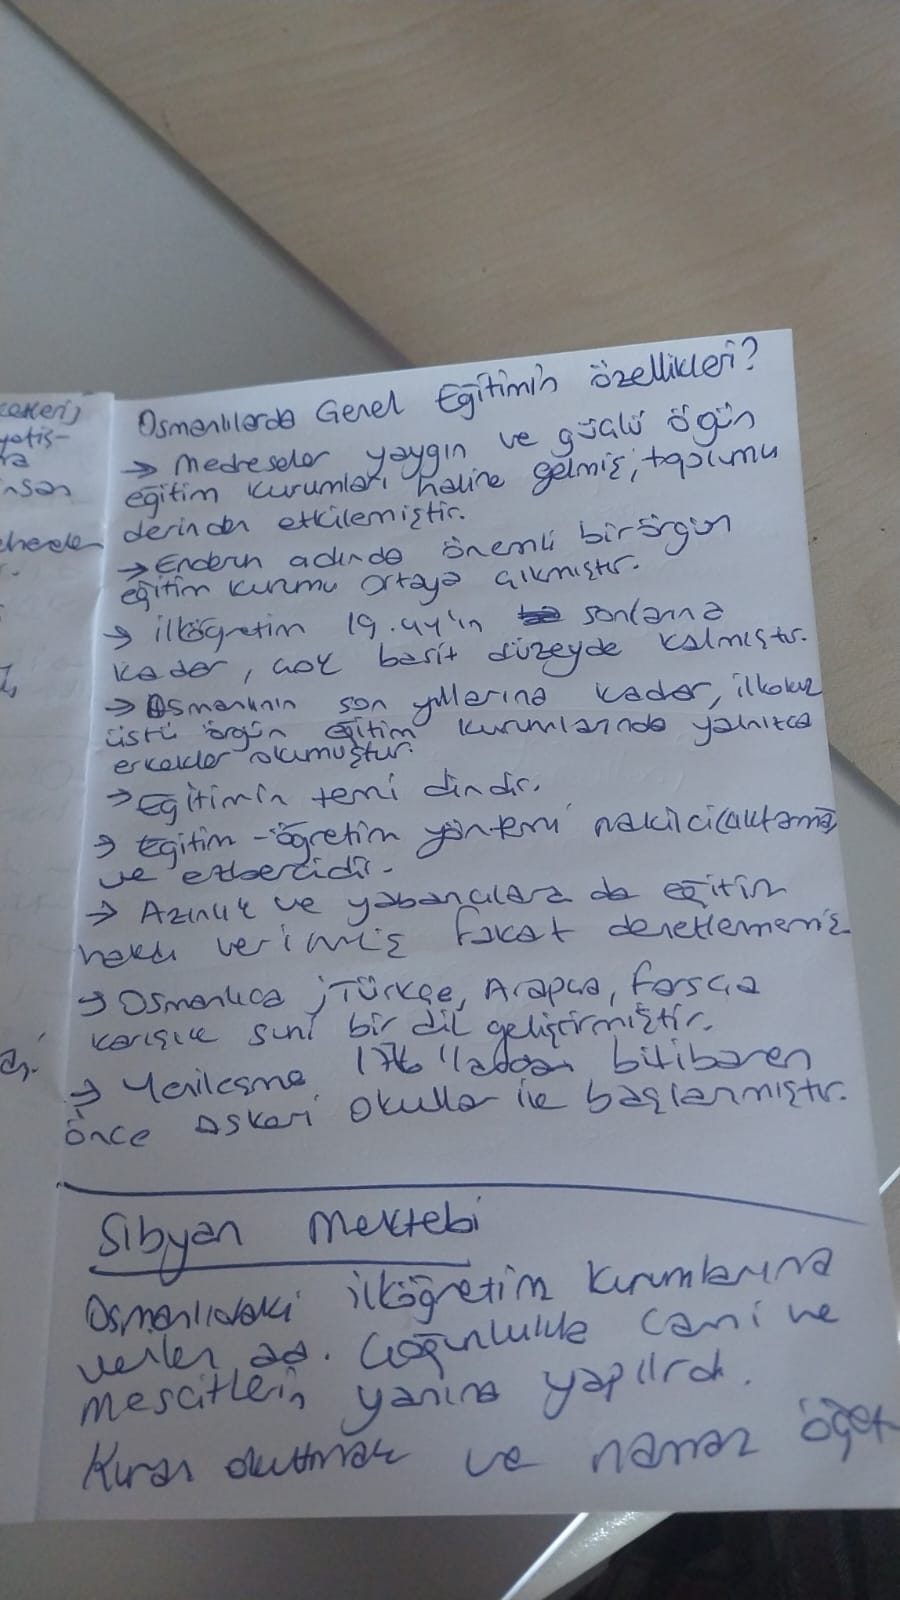 Osmanlılarda Genel Eğitimin özellikleri?
→ Medreseler yaygın ve güçlü ögün
eğitim kurumları haline gelmiş, toplumu
derinden etkilemiştir.
→ Enderun adında önemli bir örgün
eğitim kurumu ortaya çıkmıştır.
→ ilköğretim 19.yy'ın sonlarına
kadar, çok basit düzeyde kalmıştır.
→ Osmanlının son yıllarına kadar, ilkokul
üstü örgün eğitim kurumlarında yalnızca
erkekler okumuştur.
→ Eğitimin temi dindir.
→ Eğitim-öğretim yöntemi nakilci(aktarma)
ve ezbercidir.
→ Azınlık ve yabancılara da eğitim
hakkı verilmiş fakat denetlememiş
→ Osmanlıca ; Türkçe, Arapça, Farsça
karışık suni bir dil geliştirmiştir.
→ Yenileşme itibaren
önce askeri okullar ile başlanmıştır.
Sıbyan Mektebi
Osmanlıdaki ilköğretim kurumlarına
verilen ad. Çoğunlukla cami ve
mescitlerin yanına yapılırdı.
Kuran okutmak ve namaz öğret
yetiş-
insan